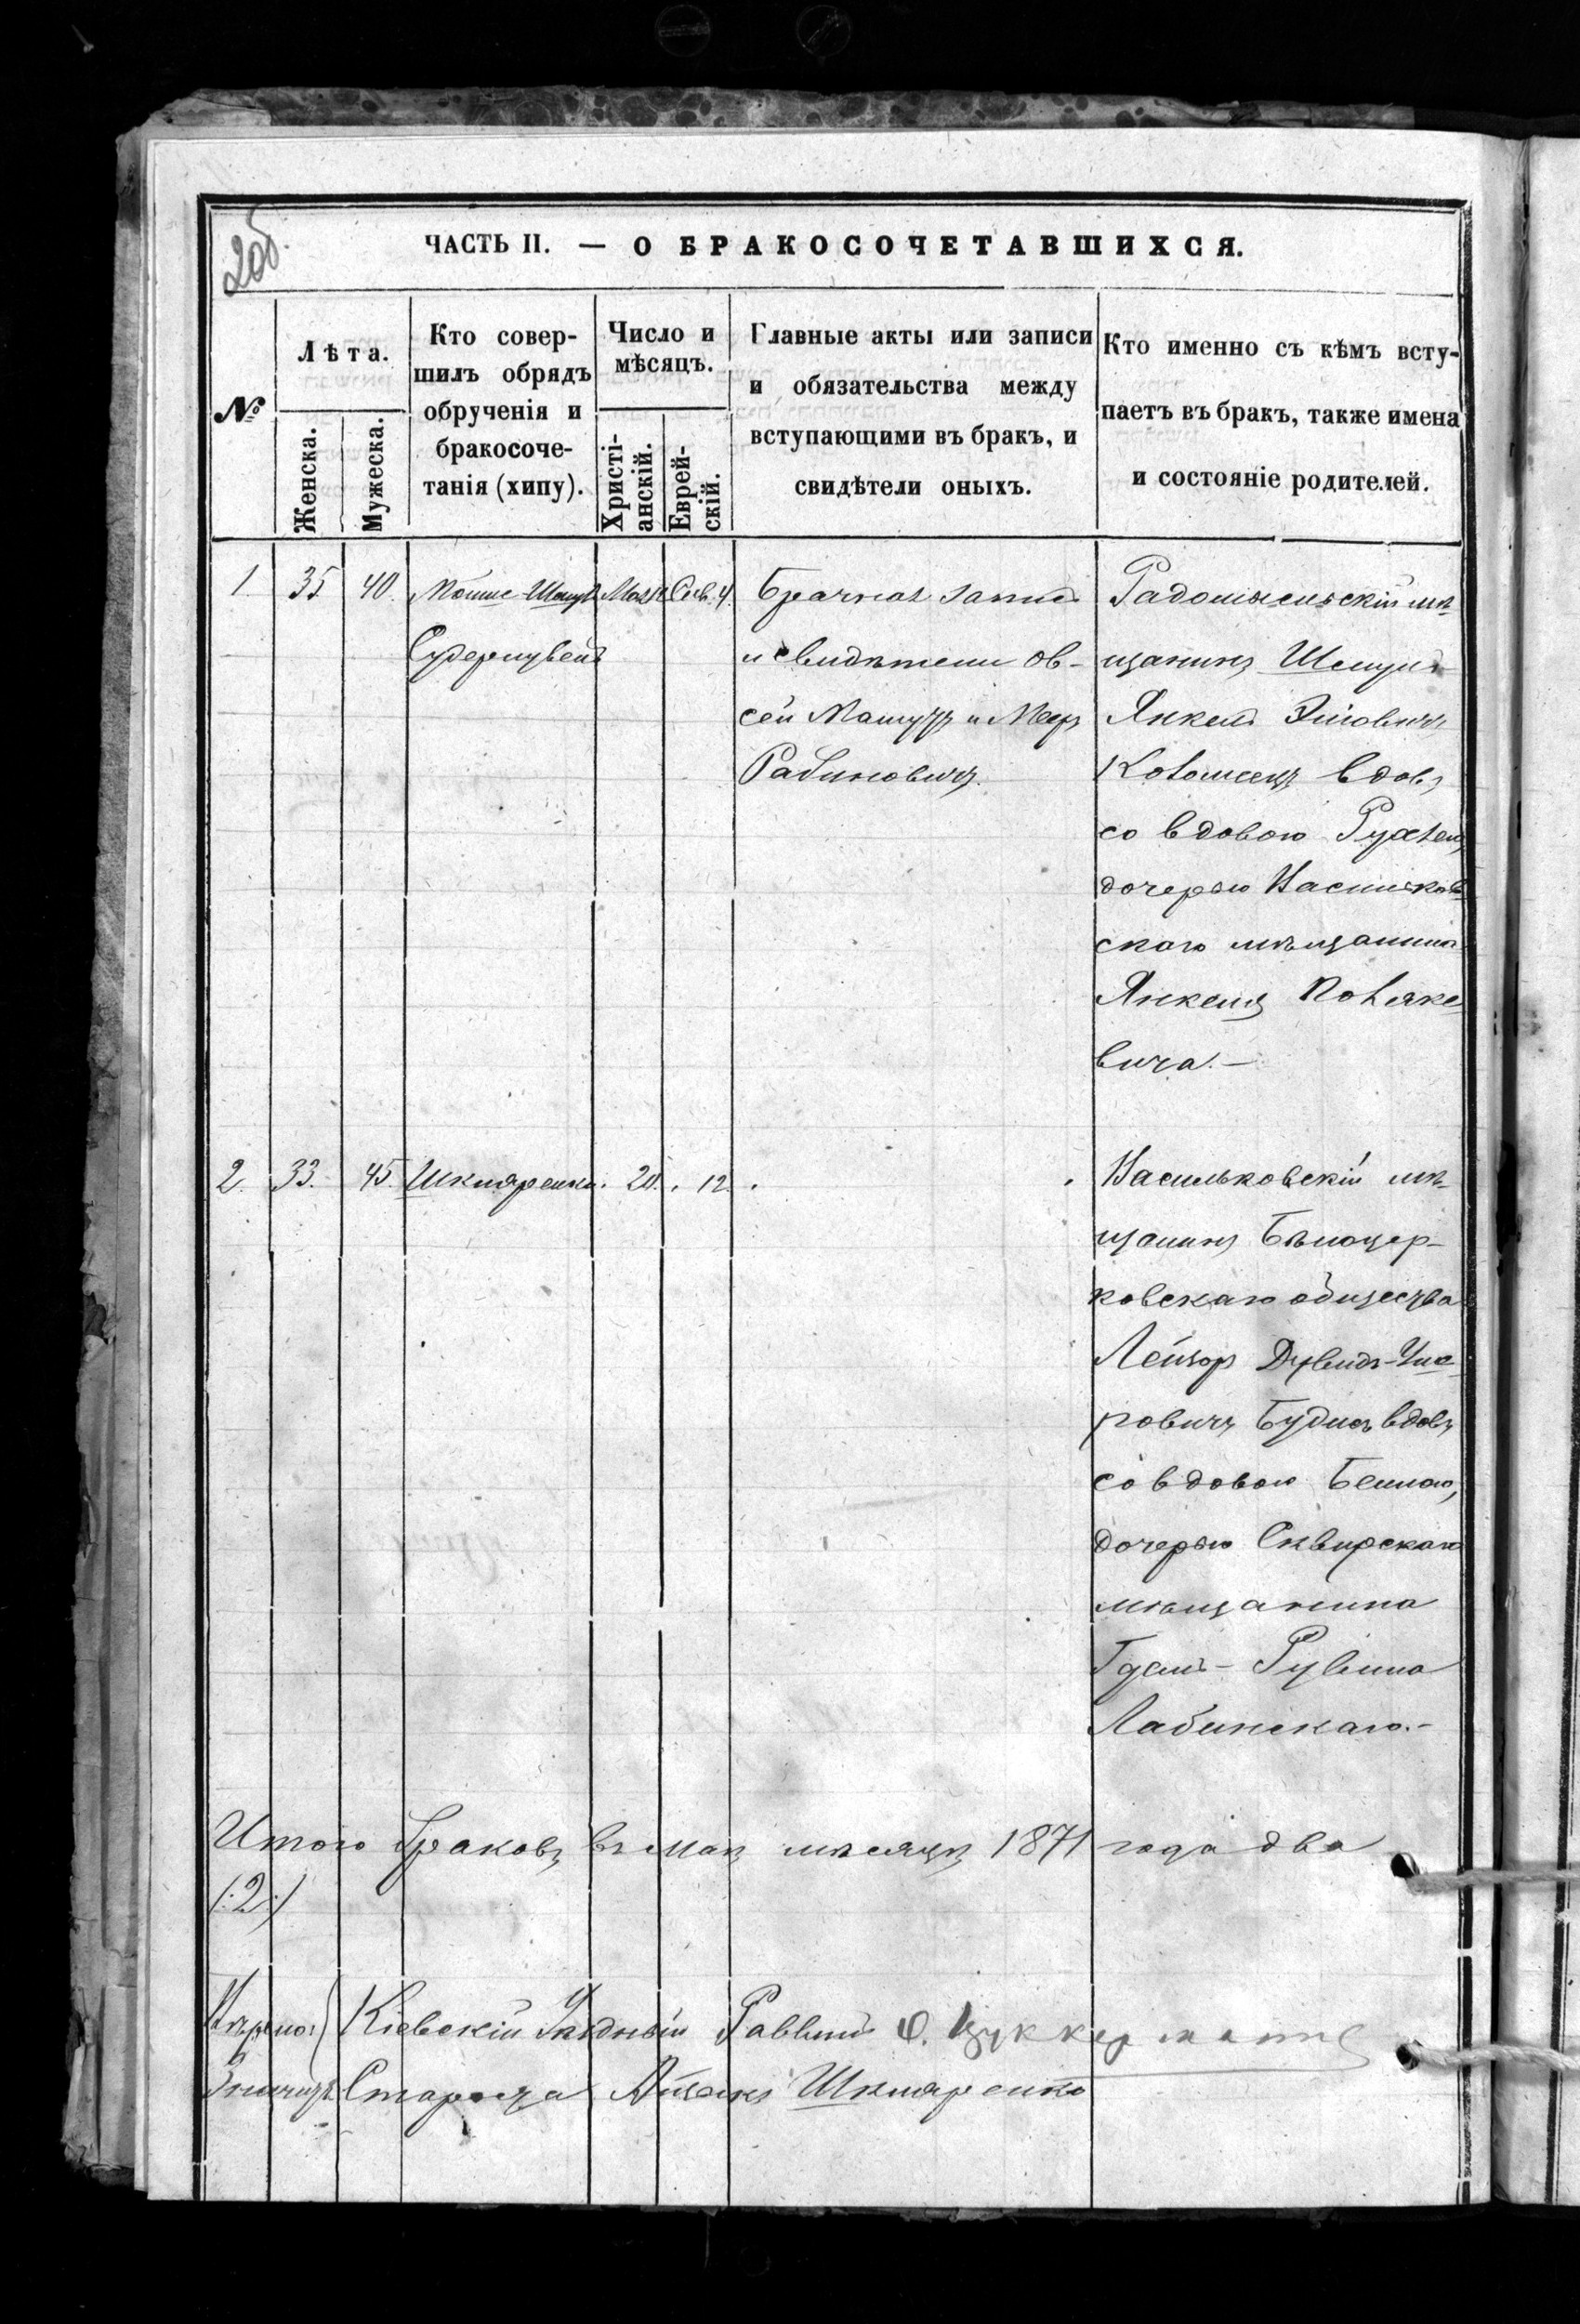 20б.
ЧАСТЬ II. — О БРАКОСОЧЕТАВШИХСЯ.
№
Лѣта.
Женска.
Мужеска.
Кто совер-
шилъ обрядъ
обрученія и
бракосоче-
танія (хипу).
Число и
мѣсяцъ.
Христі-
анскій.
Еврей-
скій.
Главные акты или записи
и обязательства между
вступающими въ бракъ, и
свидѣтели оныхъ.
Кто именно съ кѣмъ всту-
паетъ въ бракъ, также имена
и состояніе родителей.
1. 35 40.
Мошие
Сив. 4.
Брачная запись
и свидѣтели Ов-
сей Машуръ и Меръ
Рабиновичъ.
Радомысльскій мѣ-
щанинъ Шмуль
Янкель
Коломеецъ вдовъ
со вдовою Рухлею,
дочерью Васильков-
скаго мѣщанина
Янкеля Поляке-
вича.—
2. 33. 45. Шкляренко. 20. 12.
Васильковскій мѣ-
щанинъ Бѣлоцер-
ковскаго общества
Лейзоръ Дувидъ-Уше-
ровичъ вдовъ
со вдовою Бейлою,
дочерью Сквирскаго
мѣщанина
Гдаль-Рувина
Лабинскаго.-
Итого браковъ въ маѣ мѣсяцѣ 1871 года два
/:2:/
Кіевскій Уѣздный Раввинъ О. Цуккерманъ
Староста Айзикъ Шкляренко